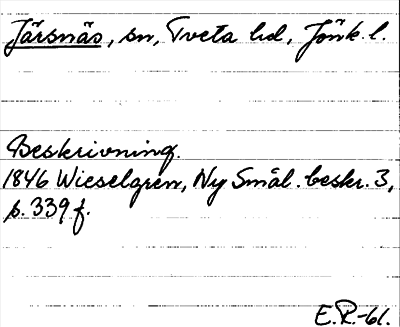 Järsnäs, sn, Tveta hd, Jönk. l.
Beskrivning.
1846 Wieselgren, Ny Smål. beskr. 3,
s. 339 f.
E.R.-61.